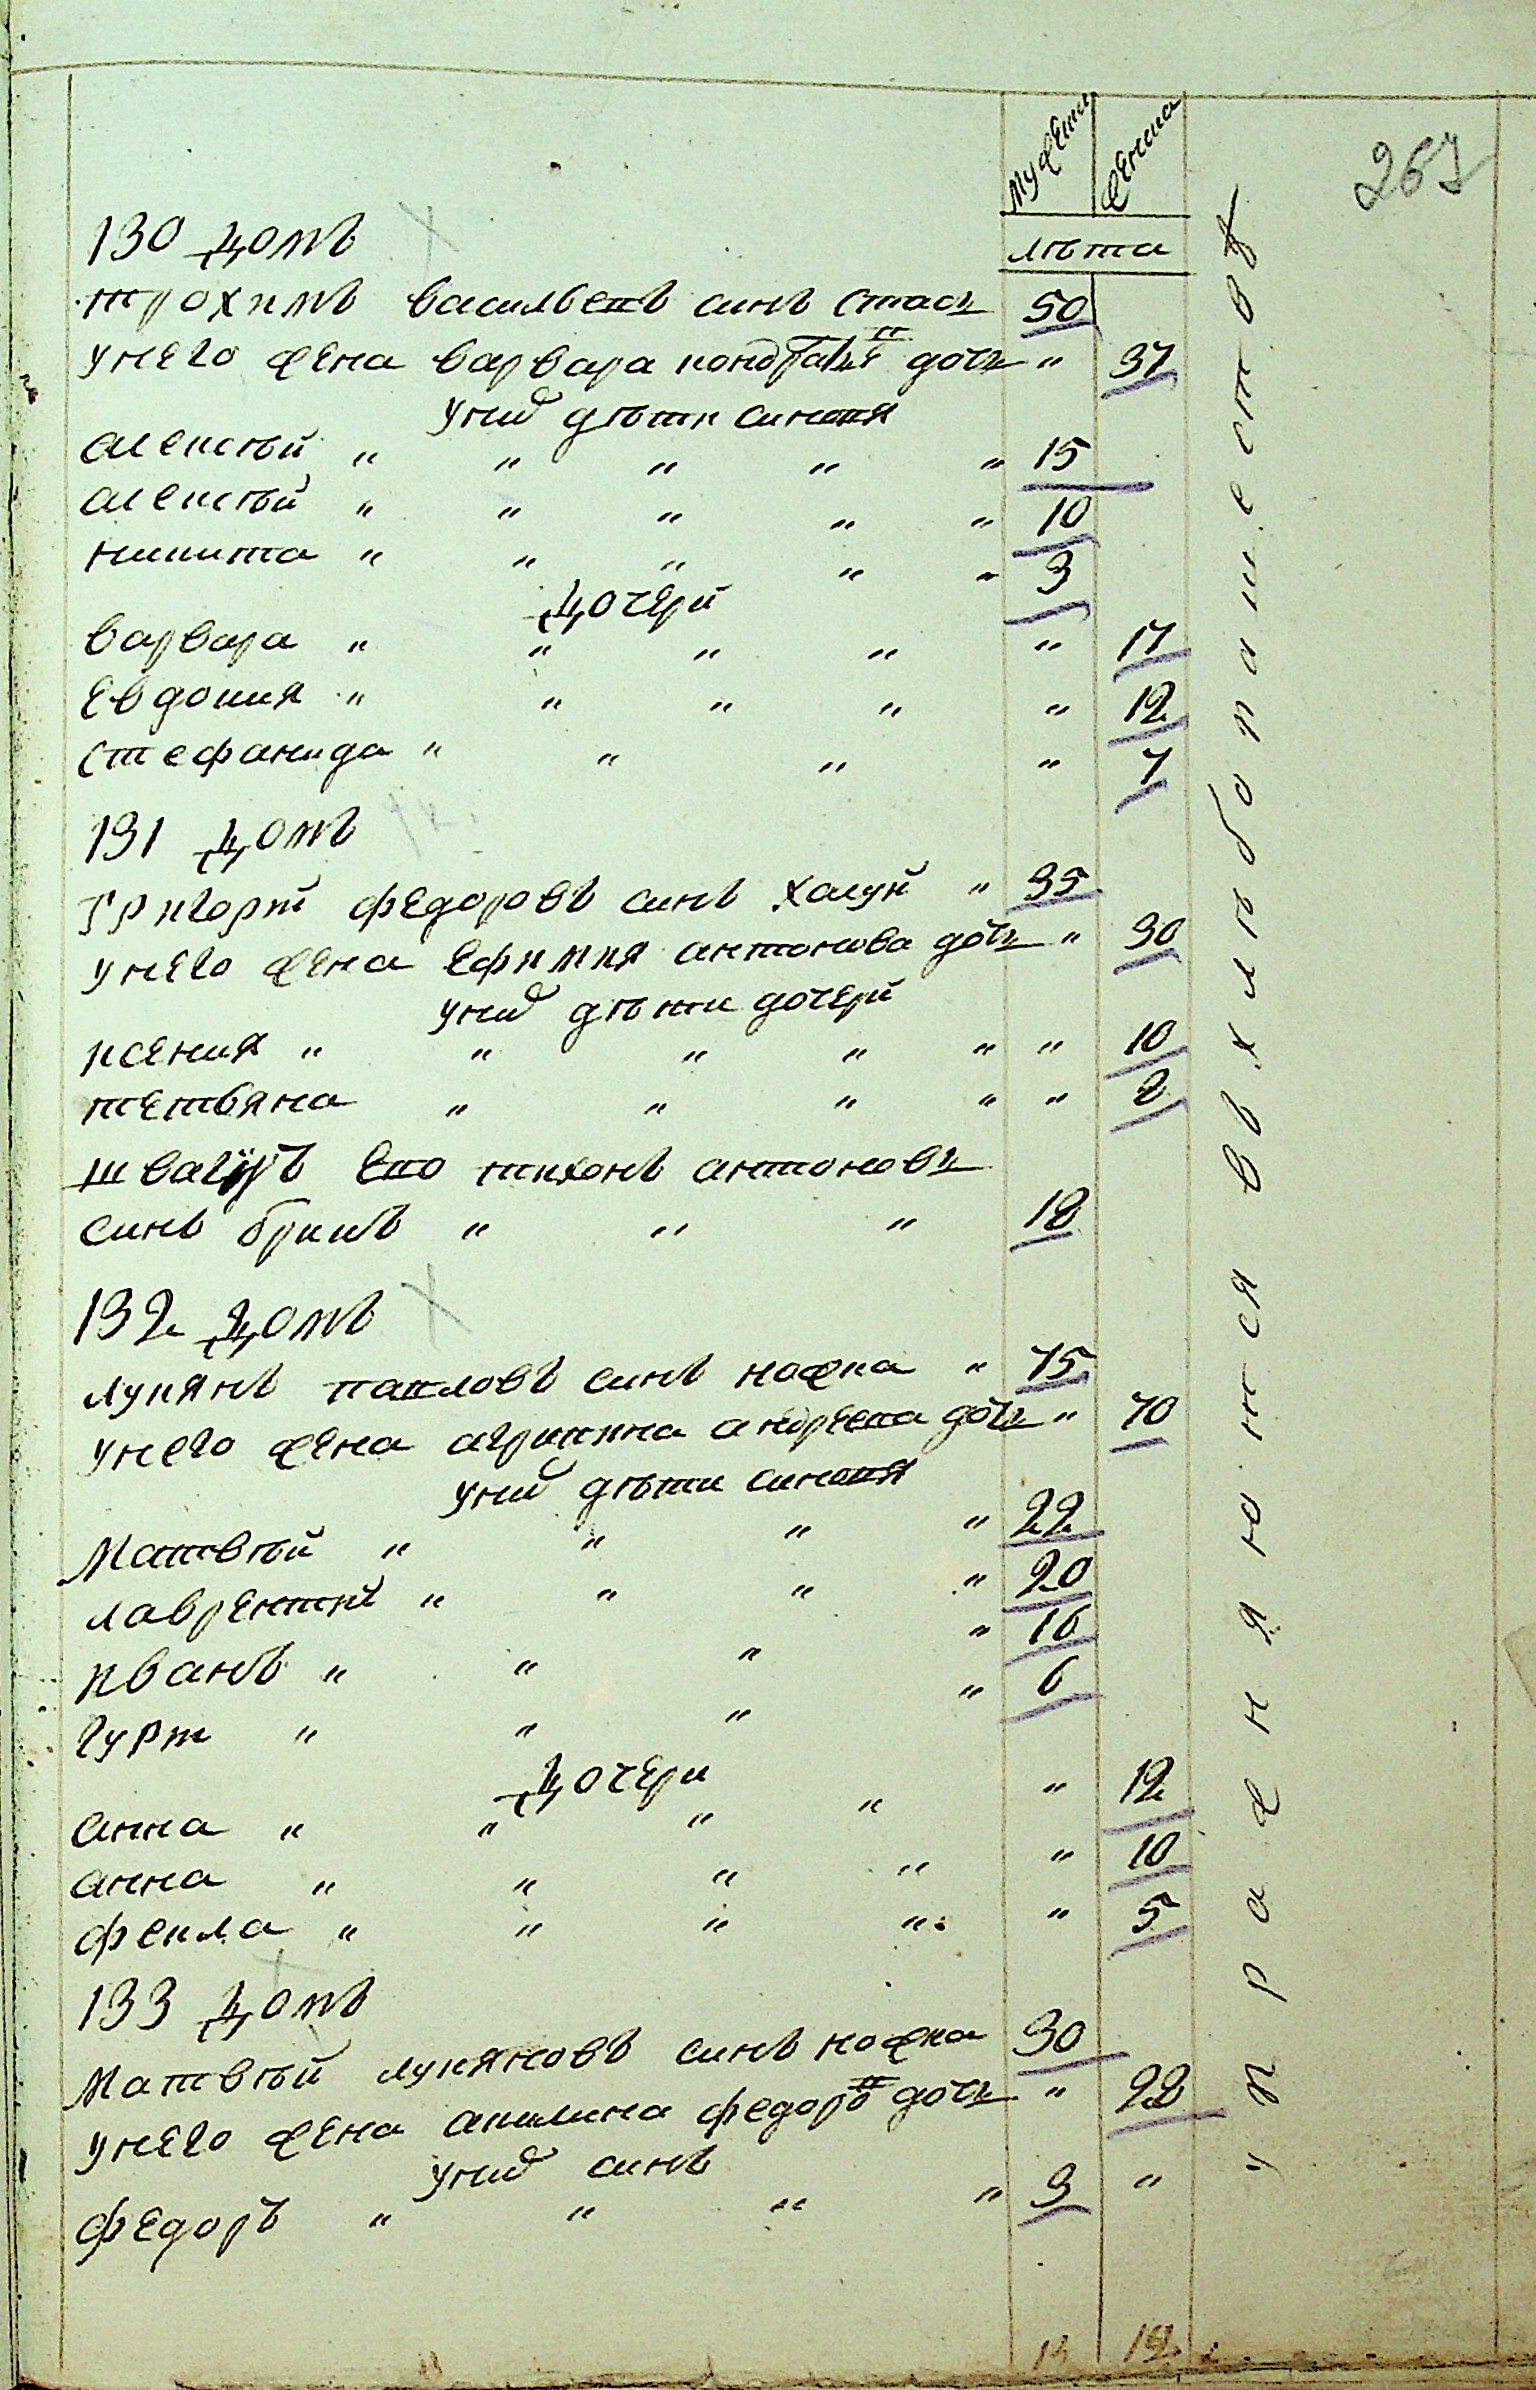 267
мужеска женска
лѣта
130 домъ
трохимъ васильевъ синъ стась 50
унего жена варвара кондратьева доч " 37
унихъ дѣти синовя
алексѣй " " " " " 15
алексѣй " " " " " 10
никита " " " " " 3
дочери
варвара " " " " " 17
евдокия " " " " " 12
стефанида " " " " 7
131 домъ
григорiй федоровъ синъ халун " 35
унего жена ефимия антонова доч " 30
унихъ дѣти дочери
ксения " " " " " " 10
тетвяна " " " " " 2
швагиръ его тихонъ антоновъ
синъ брикъ " " " 18
132 домъ
лукянъ павловъ синъ ножка " 75
унего жена агрипина андреева доч " 70
унихъ дѣти синовя
Матвѣй " " " " 22
лаврентий " " " " 20
иванъ " " " " 16
гурiй " " " " 6
дочери
анна " " " " " 12
анна " " " " " 10
фекла " " " " " 5
133 домъ
Матвѣй лукяновъ синъ ножка 30
унего жена акилина федорова доч " 22
унихъ синъ
федоръ " " " " 3 "
13 12
упражняются въ хлѣбопашествѣ